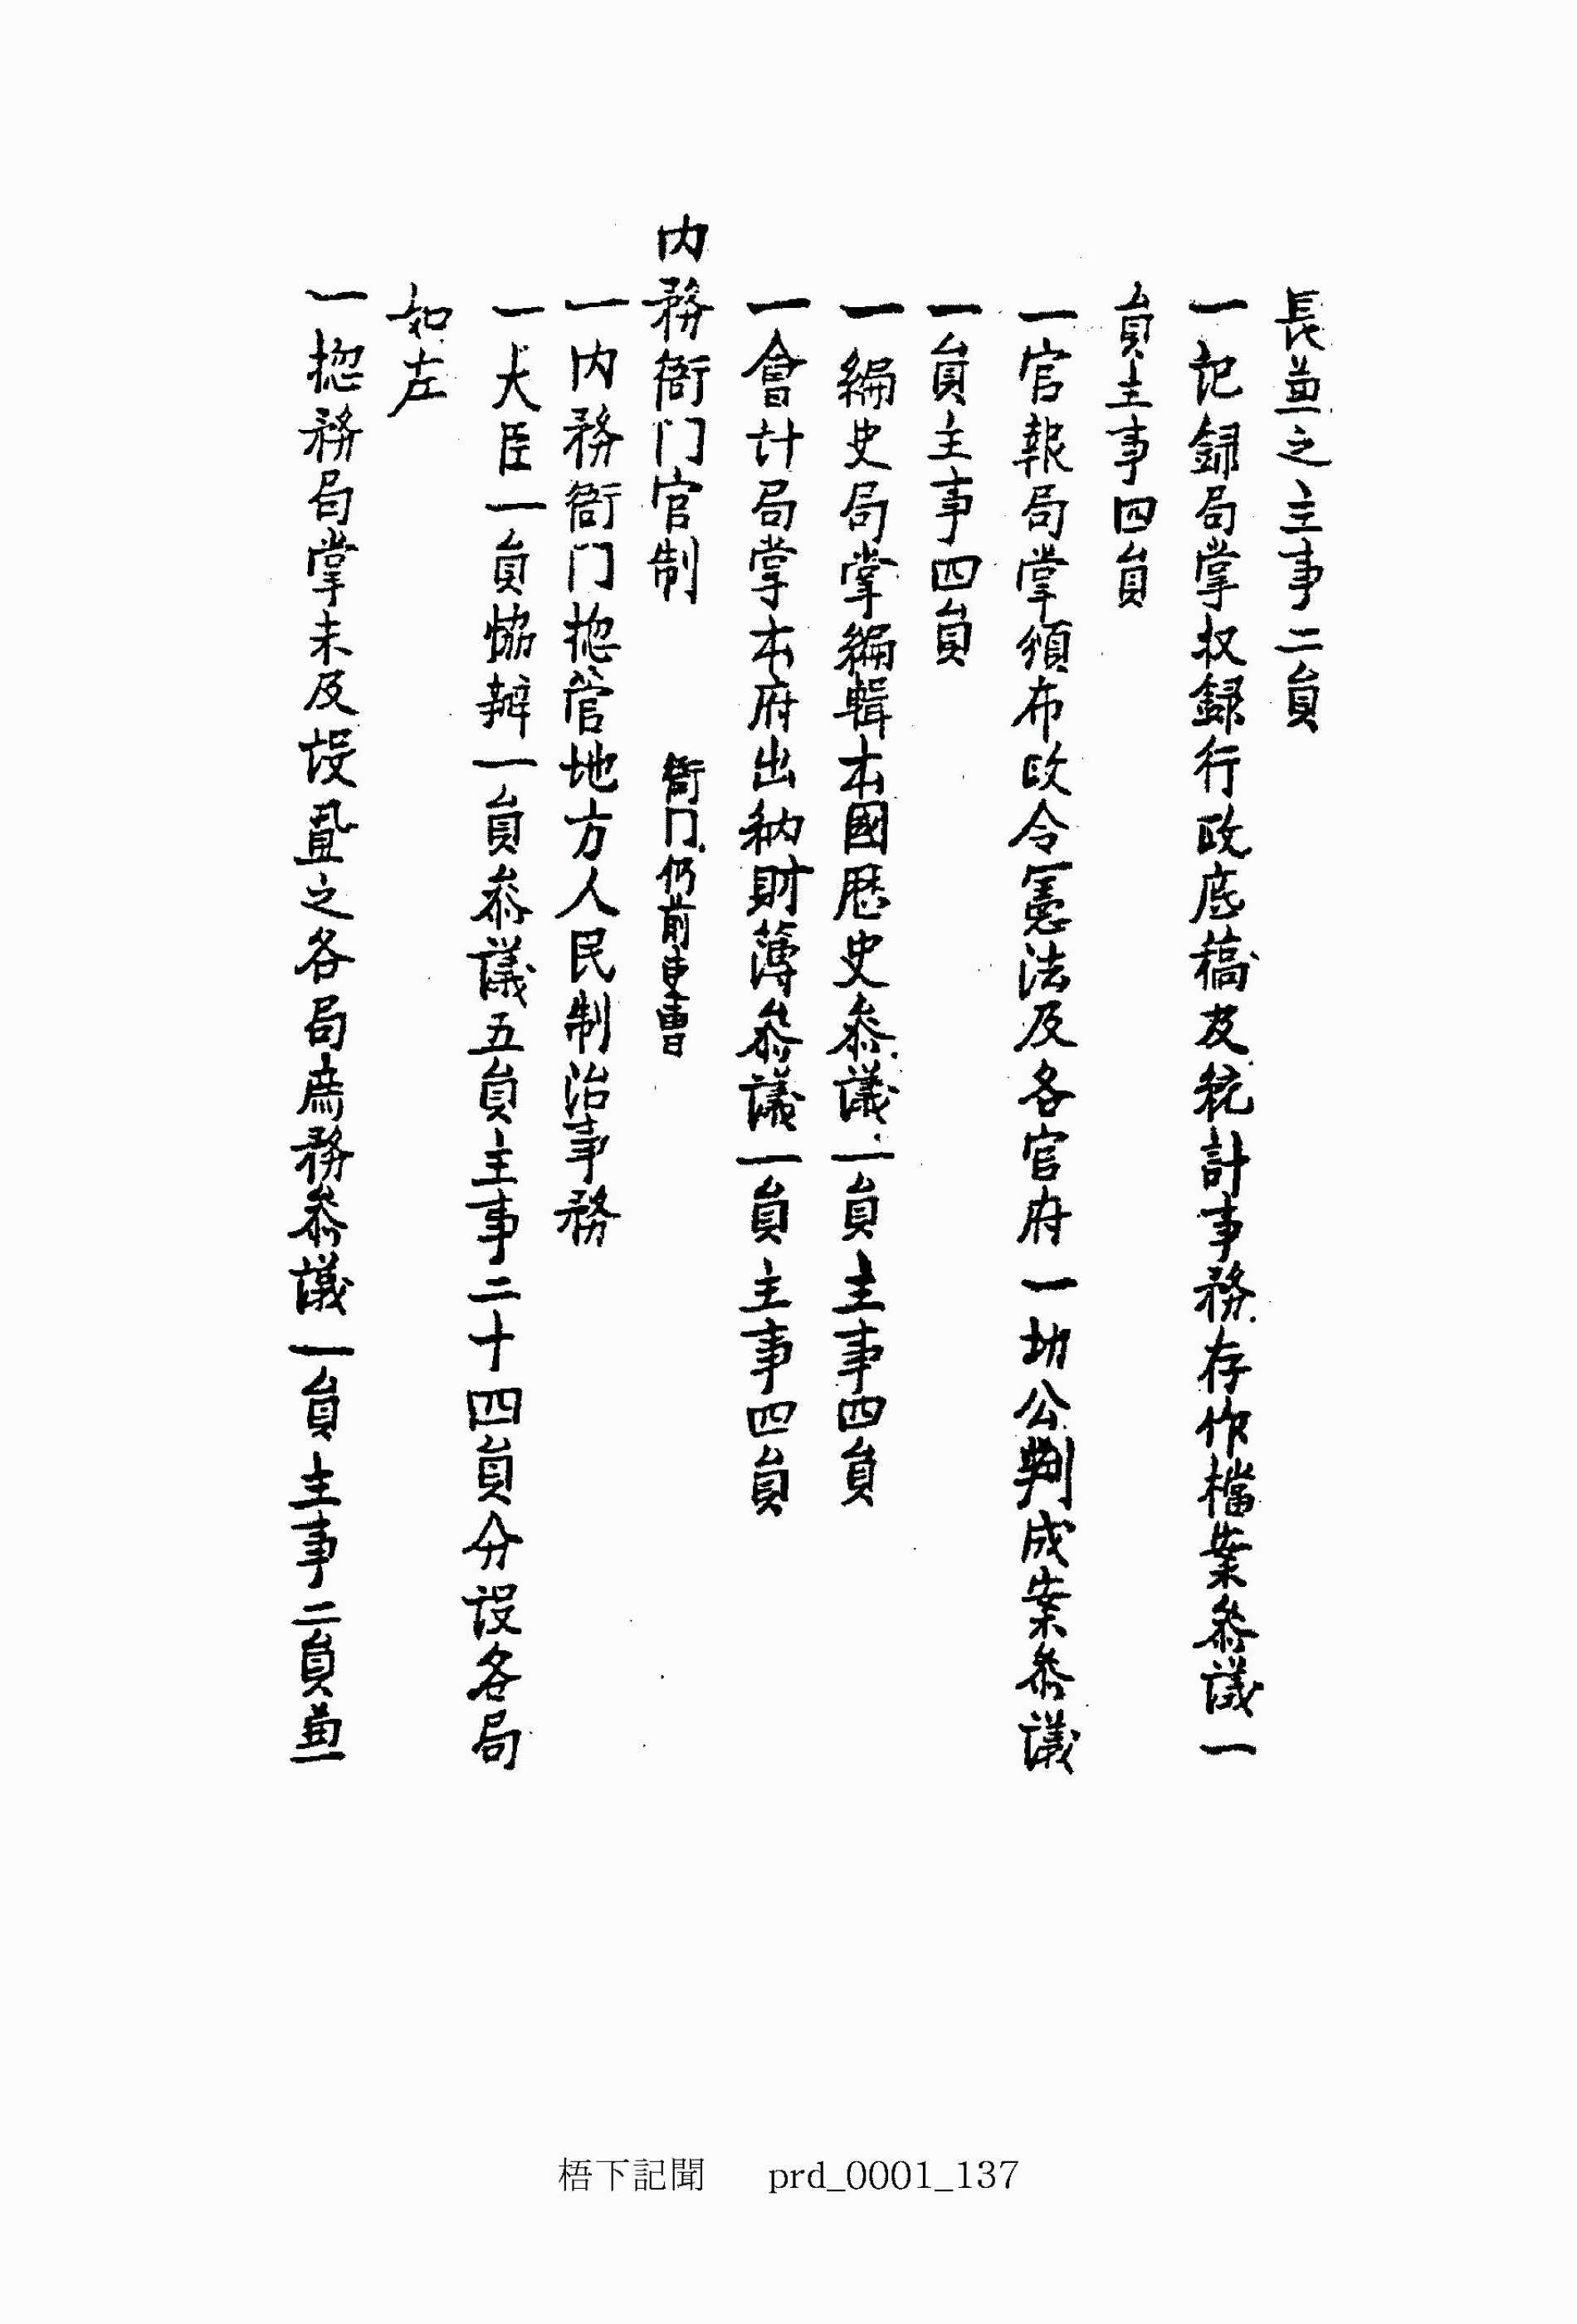 長兼之主事二員
一記録局掌収録行政底稿及統計事務存作檔案叅議一
員主事四員
一官報局掌頒布政令憲法及各官府一切公判成案叅議
一員主事四員
一編史局掌編輯本國歷史叅議一員主事四員
一會计局掌本府出納財薄叅議一員主事四員
内務衙门官制 衙门仍前吏曹
一内務衙门捴管地方人民制治事務
一大臣一員恊辦一員叅議五員主事二十四員分设各局
如左
一捴務局掌未及设置之各局庶務叅議一員主事二員兼
梧下記聞 prd_0001_137